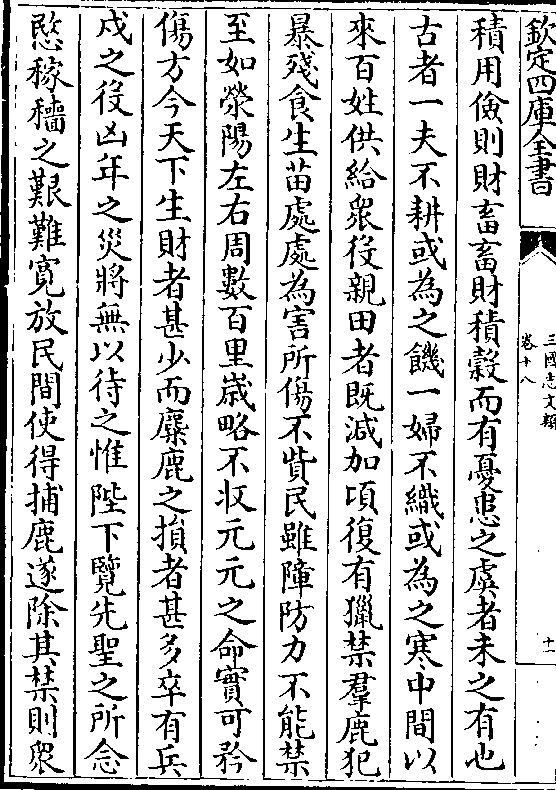 欽定四庫全書
三國志文類
卷十八
十一
積用儉則財畜畜財積穀而有憂患之虞者未之有也
古者一夫不耕或為之饑一婦不織或為之寒中間以
來百姓供給衆役親田者既減加頃復有獵禁羣鹿犯
暴殘食生苗處處為害所傷不貲民雖障防力不能禁
至如滎陽左右周數百里嵗略不收元元之命實可矜
傷方今天下生財者甚少而麋鹿之損者甚多卒有兵
戍之役凶年之災將無以待之惟陛下覽先聖之所念
愍稼穡之艱難寛放民間使得捕鹿遂除其禁則衆